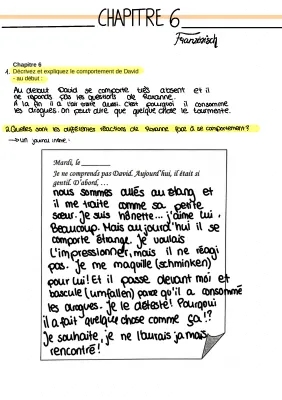 CHAPITRE 6
Französisch
Chapitre 6
1. Décrivez et expliquez le comportement de David
- au début :
Au debut David se comporte très absent et il
ne réponds pas les questions de Roxanne.
A la fin il a l'air triste aussi. C'est pourquoi il consomme
les drogues. on peut dire que quelque chose le tourmente.
2. Quelles sont les différentes réactions de Roxanne face à ce comportement?
→ un journal intime.
Mardi, le
Je ne comprends pas David. Aujourd'hui, il était si
gentil. D'abord, ...
nous sommes allés au étang et
il me traite comme sa petite
sœur. Je suis honette... j'aime lui.
Beaucoup. Mais aujourd'hui il se
comporte étrange. Je voulais
l'impressionner, mais il ne réagi
pas. Je me maquille (schminken)
pour lui! Et il passe devant moi et
bascule (umfallen) parce qu'il a consommé
les drogues. Je le déteste! Pourquoi
il a fait quelque chose comme ça!?
Je souhaite, je ne l'aurais jamais
rencontré!